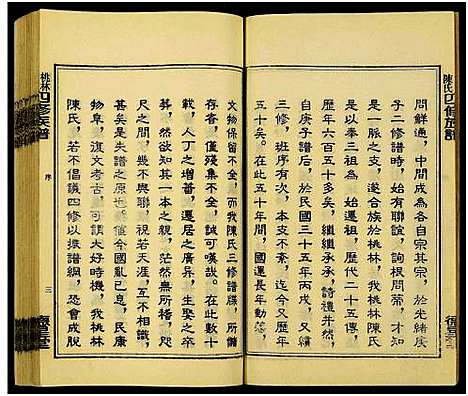 陳氏四修族譜
問鮮通，中間成為各自宗其宗，於光緒庚
子二修譜時，始有聯誼，詢根問蒂，才知
是一脈之支，遂合族於桃林，我桃林陳氏
是以奉三祖為　始遷祖，歷代二十五傳，
歷年六百五十有奇，繼繼承承，詩禮并然，
自庚子譜后，於民國三十五年丙戌，又續
三修，班序有次，本支不紊，迄今又歷年
五十矣。在此五十年間，國運長年動蕩，
文物保留不全，而我陳氏三修譜牒，所
存者，僅殘集不全，誠可嘆說。在此數十
年之間，人丁之增蕃，遷居之廣昇，生娶之卒
葬，然欲知其一本之親，茫然無所稽，
尺之間，幾不與聯，視若天涯，互不關痛，
甚矣是失譜之原也，僅今國亂已息，民康
物阜，復文考古，可謂大好時機，我桃林
陳氏，若不倡議四修以振譜綱，恐會成脫
桃林四修族譜
序
三